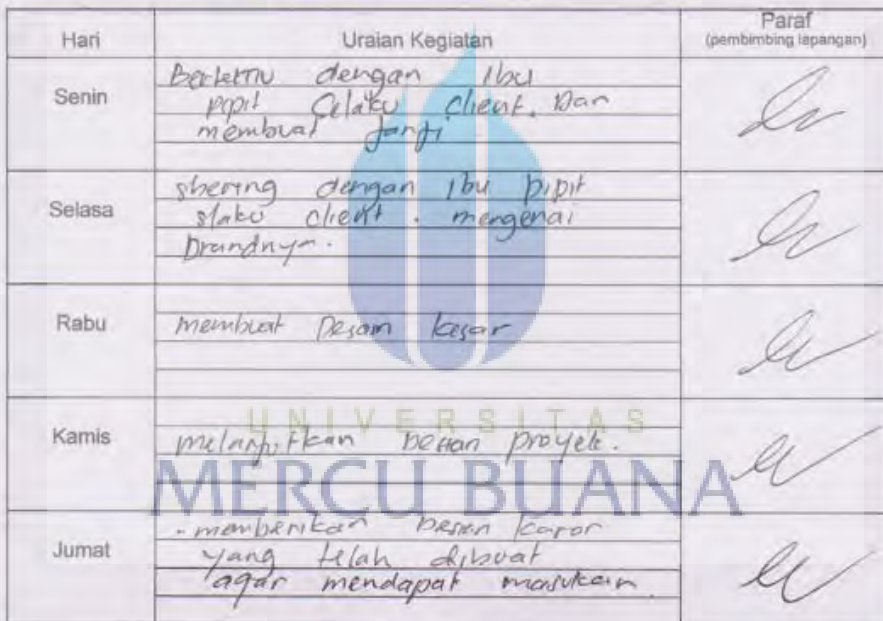 Hari Uraian Kegiatan Paraf
(pembimbing lapangan)
Senin
Bertemu dengan Ibu
pipit Selaku client. Dan
membuat Janji
Selasa
shering dengan Ibu pipit
slaku client. mengenai
brandnya.
Rabu
membuat Desain kasar
Kamis
melanjutkan desain proyek.
Jumat
- memberikan Desain kasar
yang telah dibuat
agar mendapat masukan
UNIVERSITAS
MERCU BUANA